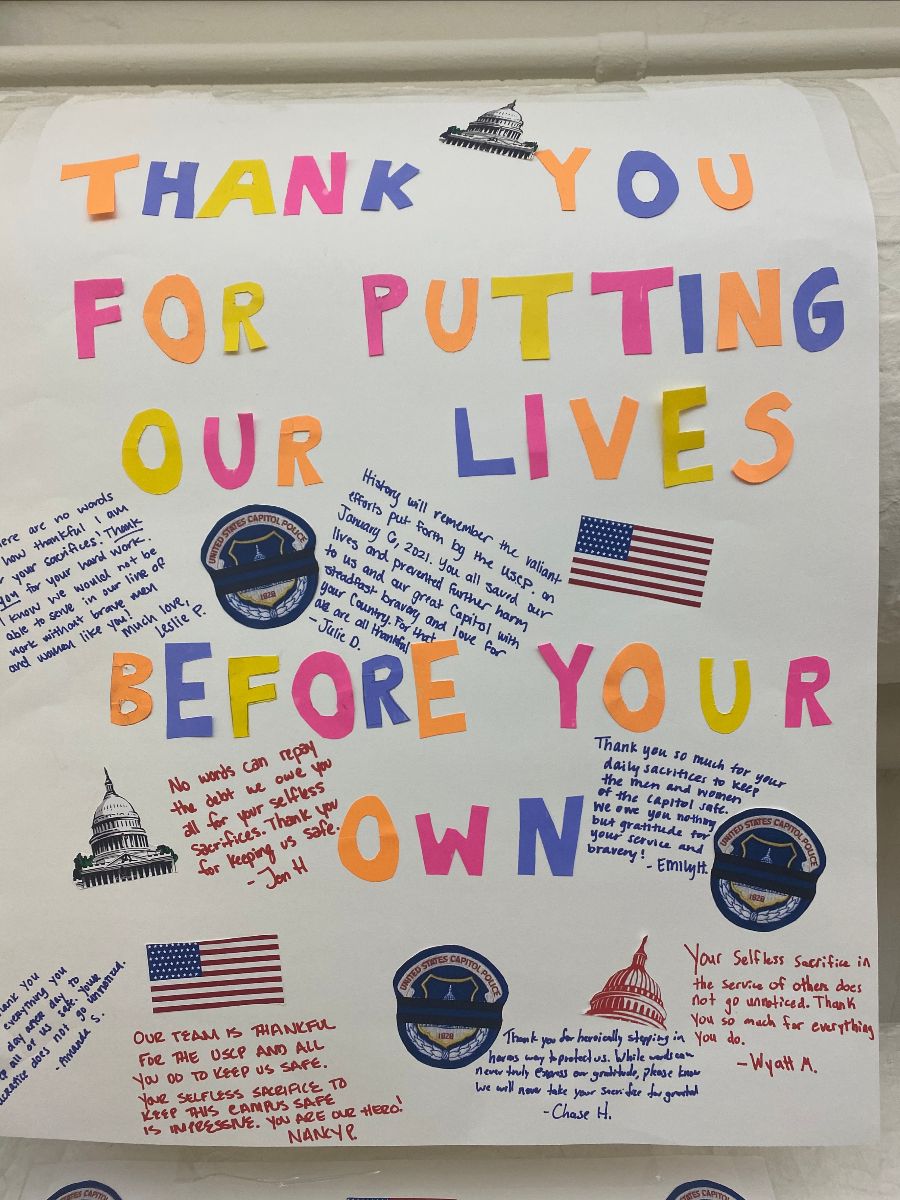 THANK YOU
FOR PUTTING
OUR LIVES
ere are no words
how thankful I am
your sacrifices! Thank
you for your hard work.
I know we would not be
able to serve in our line of
work without brave men
and women like you!
Much love,
Leslie F.
UNITED STATES CAPITOL POLICE
1828
History will remember the valiant
efforts put forth by the USCP on
January 6, 2021. You all saved our
lives and prevented further harm
to us and our great Capitol with
steadfast bravery and love for
your Country. For that
we are all thankful
- Julie D.
BEFORE YOUR
OWN
No words can repay
the debt we owe you
all for your selfless
sacrifices. Thank you
for keeping us safe.
- Jon H
Thank you so much for your
daily sacrifices to keep
the men and women
of the capitol safe.
We owe you nothing
but gratitude for
your service and
bravery!
- Emily H.
UNITED STATES CAPITOL POLICE
1828
hank you
everything you
day after day to
all of us safe. Your
does not go unnoticed.
- Amanda S.
OUR TEAM IS THANKFUL
FOR THE USCP AND ALL
YOU DO TO KEEP US SAFE.
YOUR SELFLESS SACRIFICE TO
KEEP THIS CAMPUS SAFE
IS IMPRESSIVE. YOU ARE OUR HERO!
NANCY P.
UNITED STATES CAPITOL POLICE
1828
Thank you for heroically stepping in
harms way to protect us. While words can
never truly express our gratitude, please know
we will never take your sacrifice for granted
- Chase H.
Your Selfless Sacrifice in
the service of others does
not go unnoticed. Thank
you so much for everything
you do.
- Wyatt M.
STATES CAPITOL
STATES CAPITOL